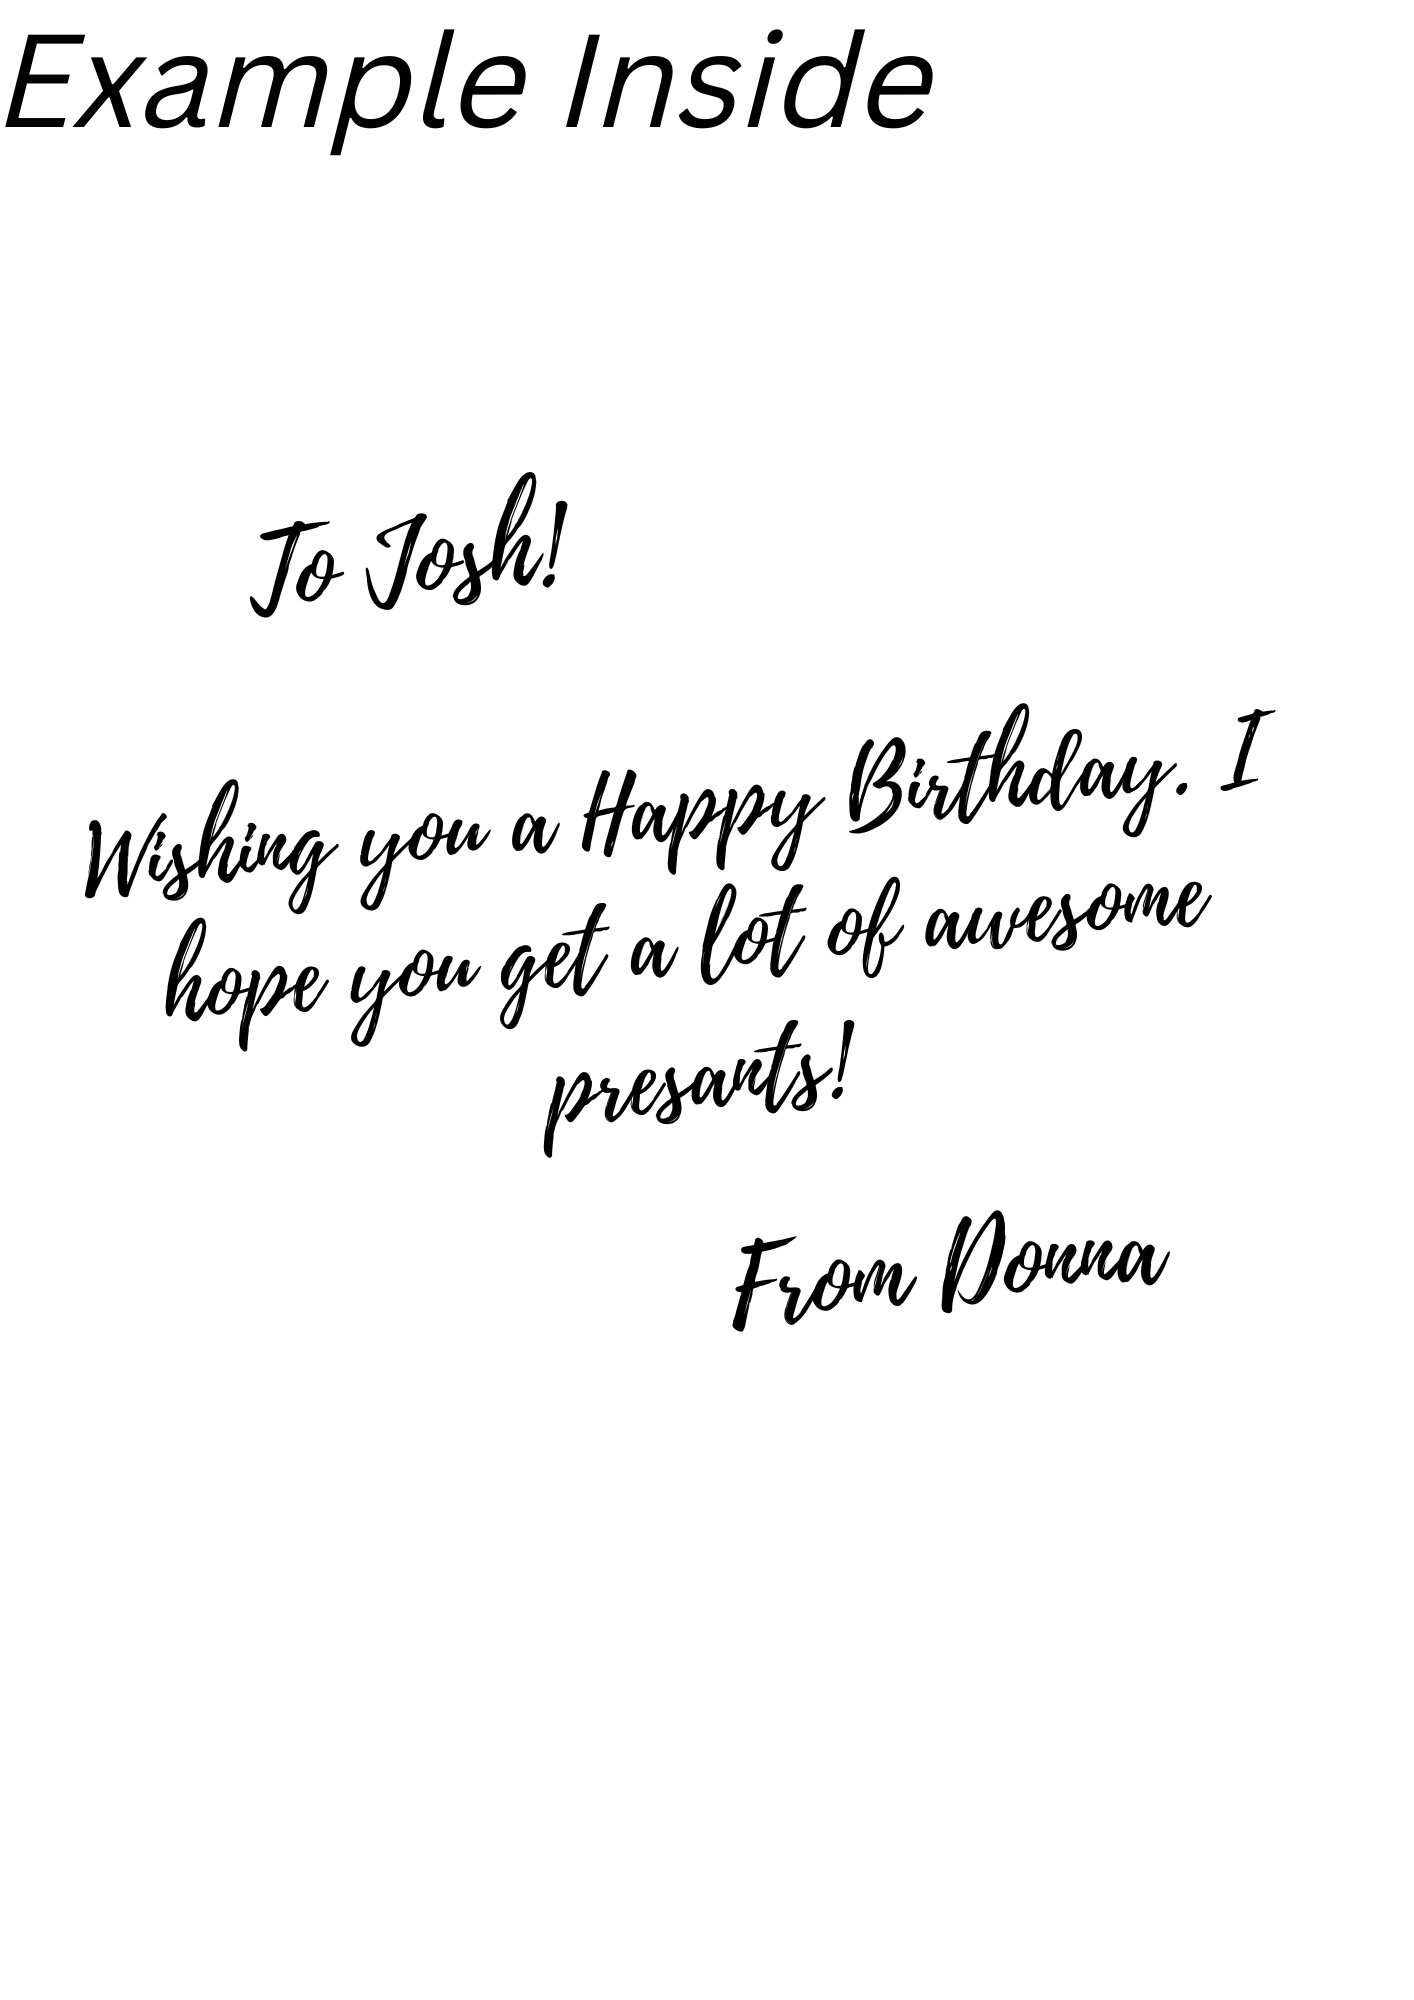 Example Inside
To Josh!
Wishing you a Happy Birthday. I
hope you get a lot of awesome
presants!
From Donna